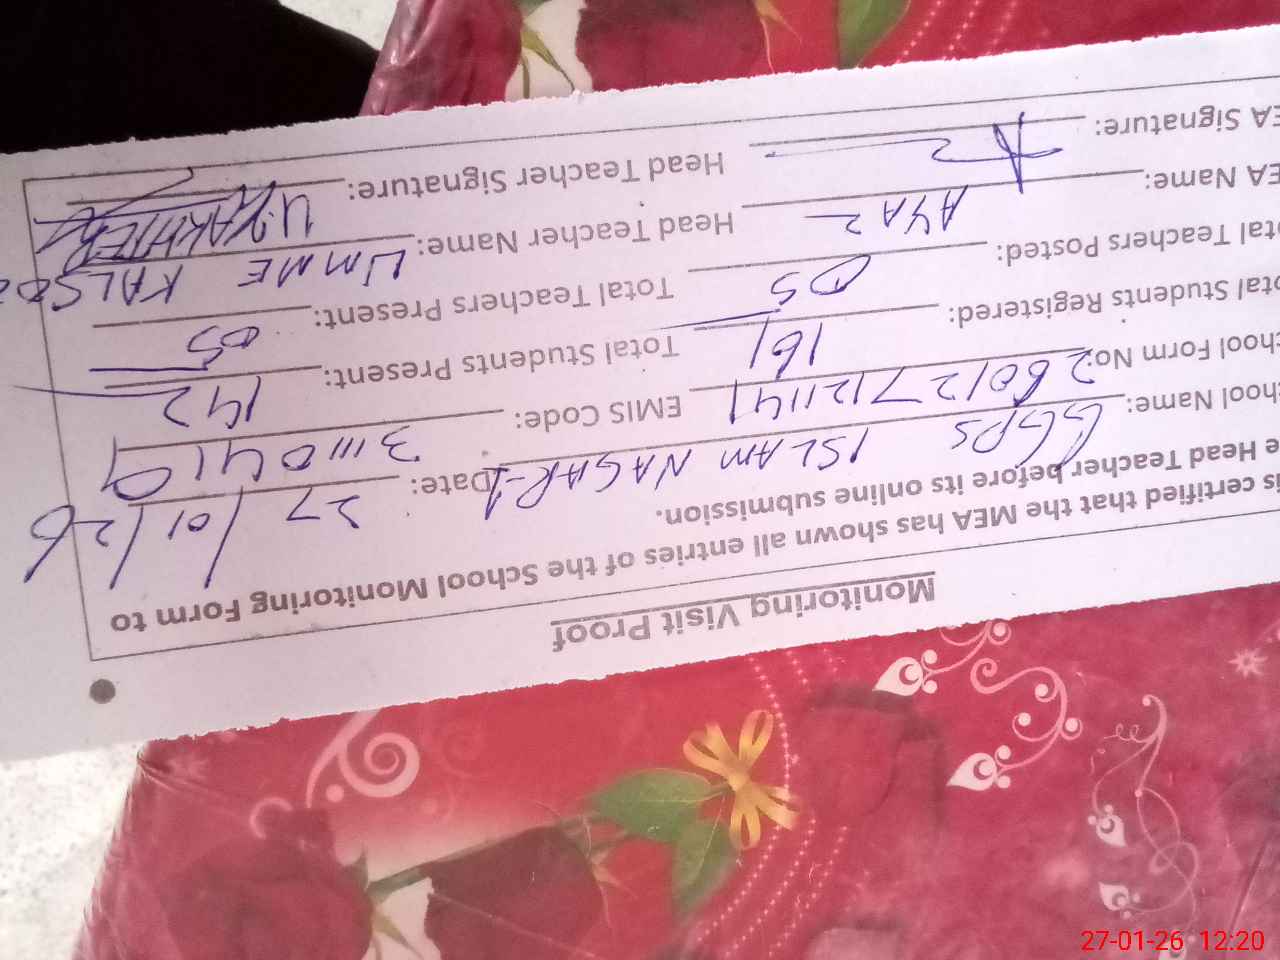 Monitoring Visit Proof
is certified that the MEA has shown all entries of the School Monitoring Form to
e Head Teacher before its online submission. Date: 27/01/26
hool Name: GGPS ISLAM NAGAR-1
chool Form No: 26012712114 EMIS Code: 31110419
otal Students Registered: 161 Total Students Present: 142
otal Teachers Posted: 05 Total Teachers Present: 05
EA Name: AYAZ Head Teacher Name: UMME KALSOO
EA Signature: Head Teacher Signature: U.KAKHTER
27-01-26 12:20